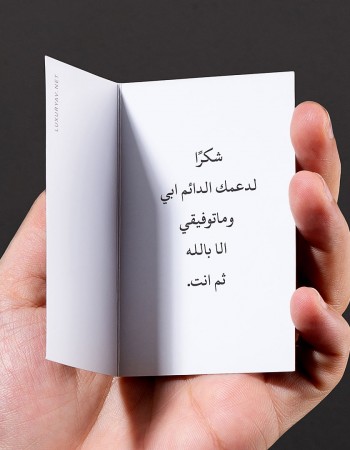 شكرًا
لدعمك الدائم ابي
وماتوفيقي
الا بالله
ثم انت.